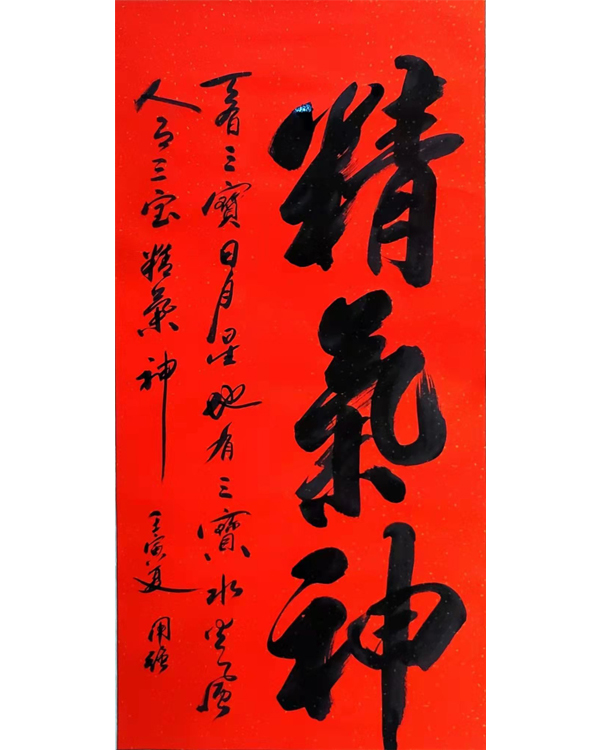 精氣神
天有三寶日月星地有三寶水火風
人有三宝精氣神
壬寅夏